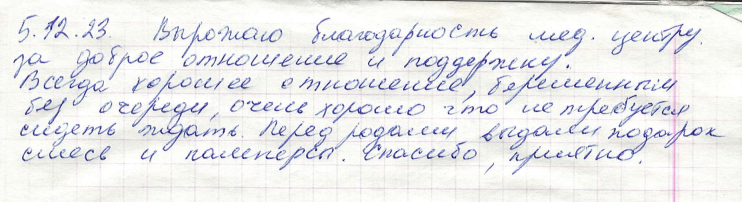 5.12.23. Вырожаю благодарность мед. центру.
за доброе отношение и поддержку.
Всегда хорошее отношение, беременным
без очереди, очень хорошо что не требуется
сидеть ждать. Перед родами выдали подарок
смесь и памперсы. Спасибо, приятно.